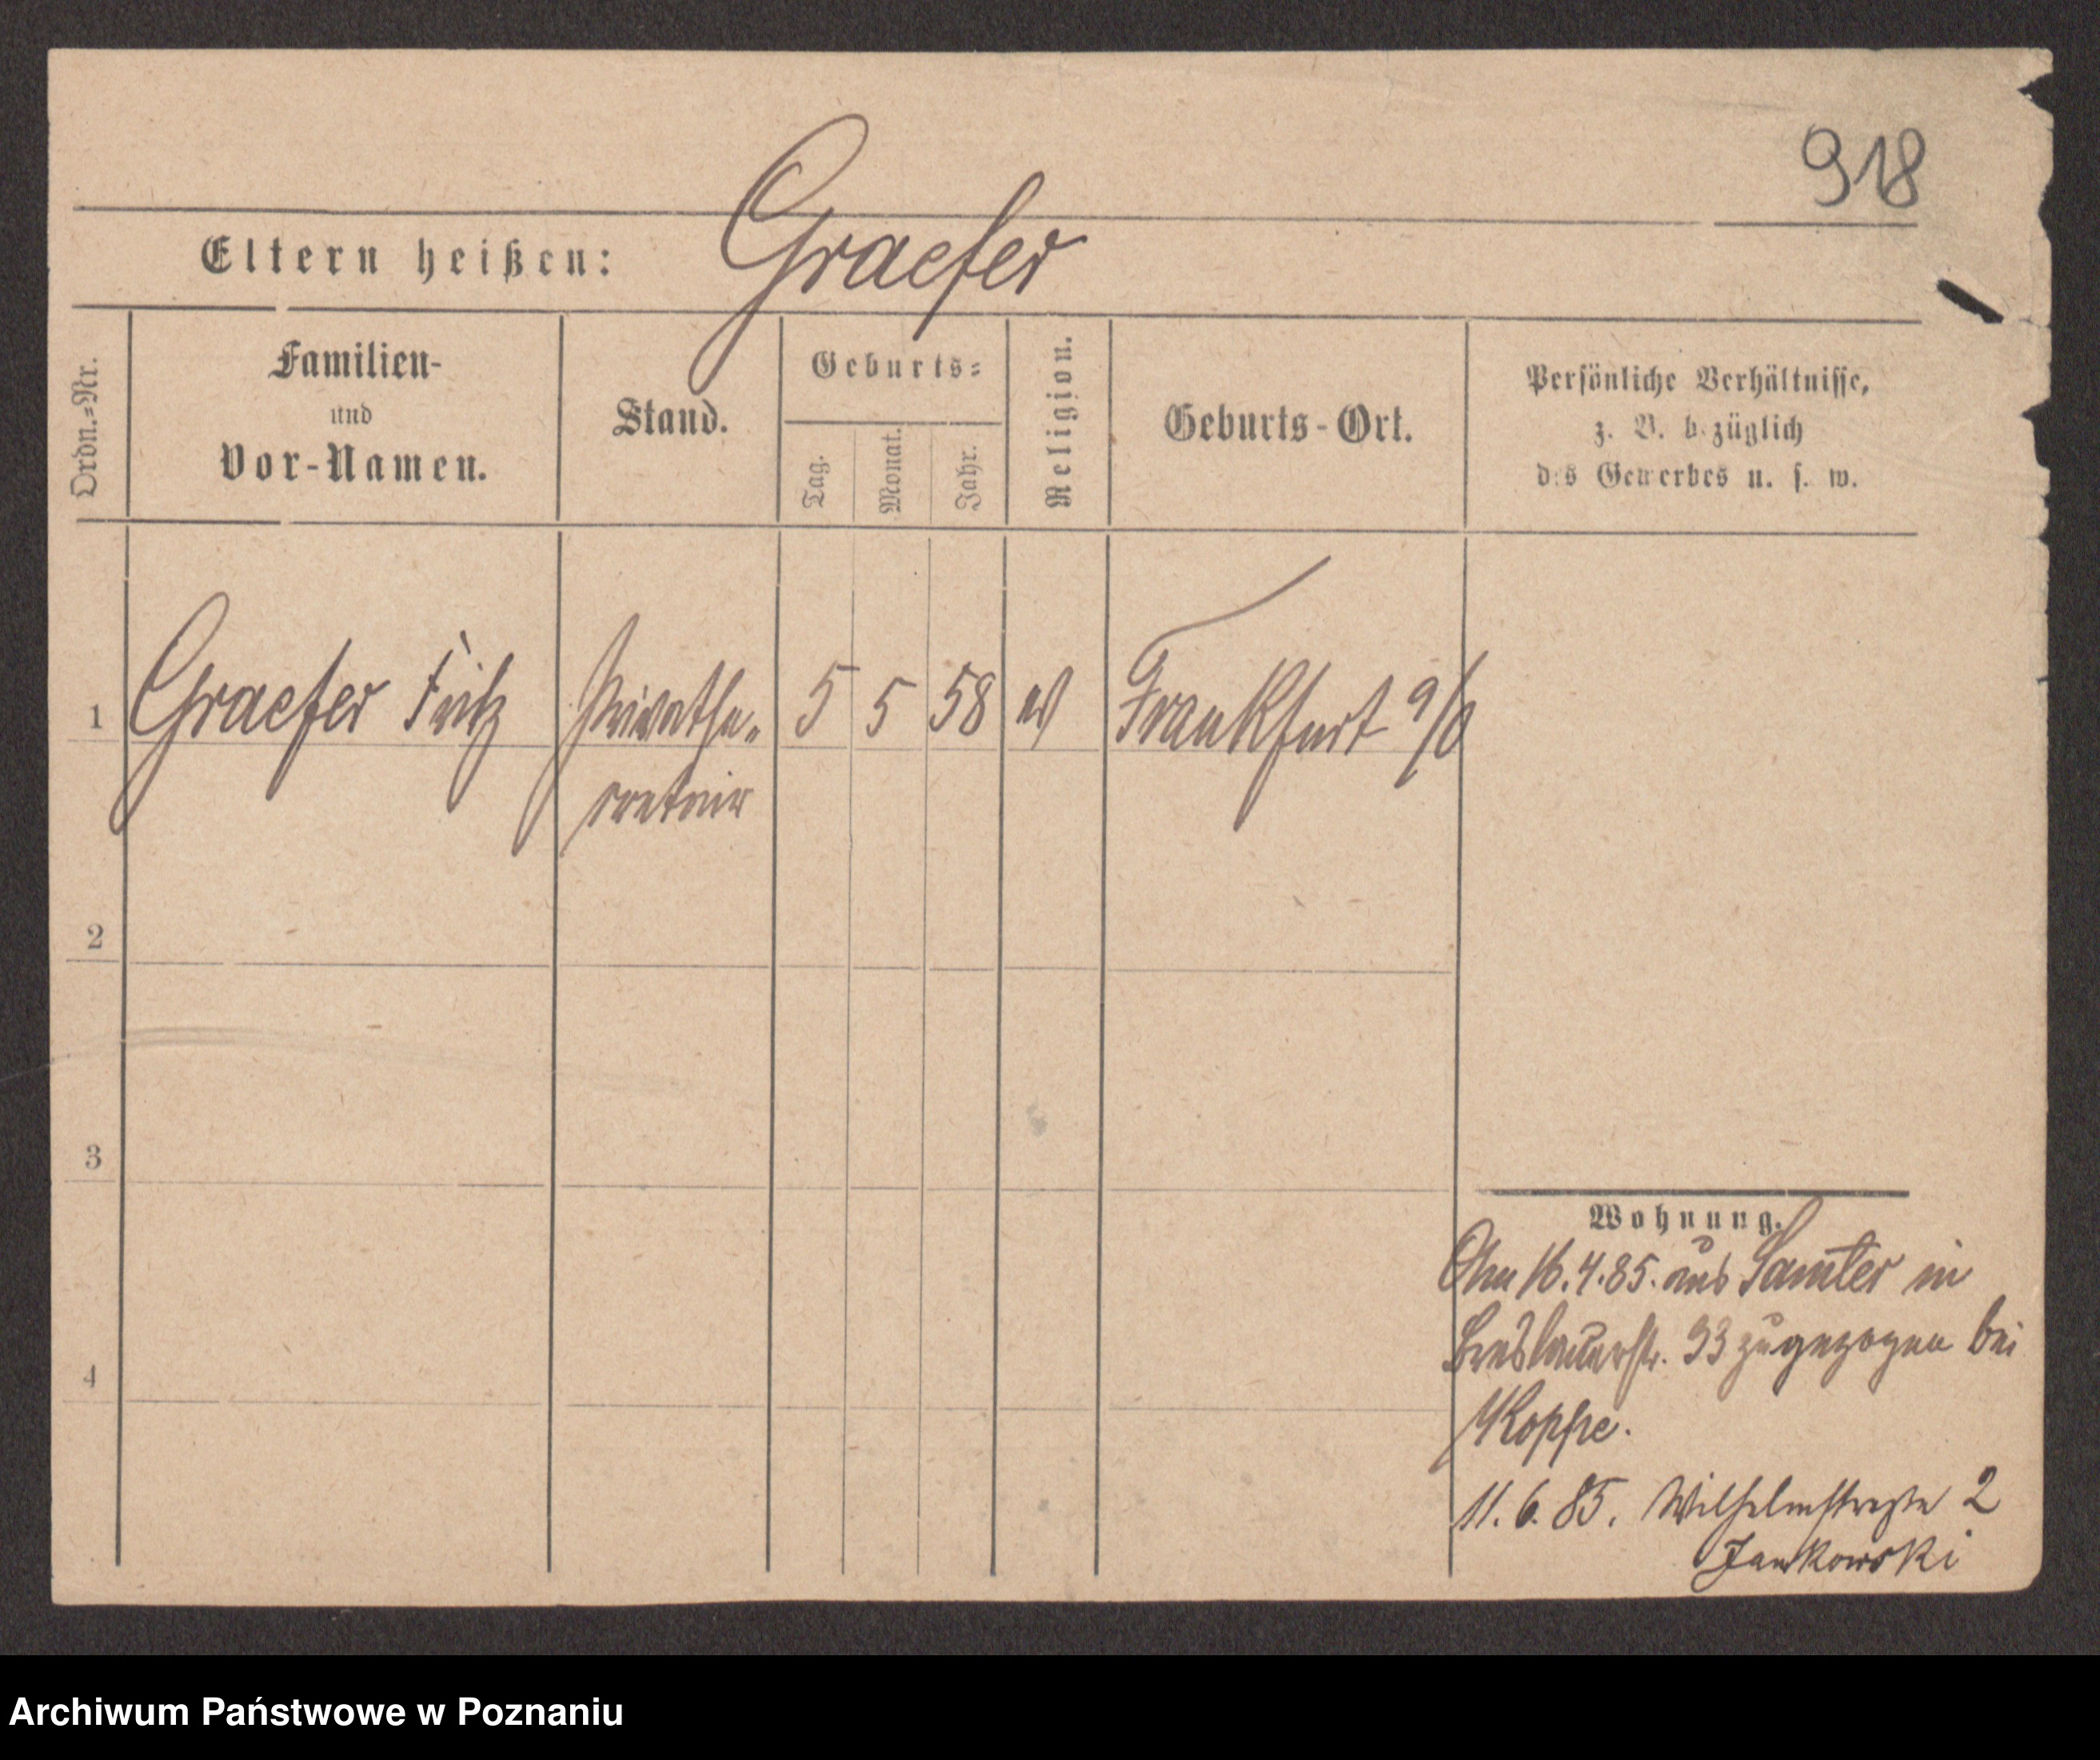 918
Eltern heißen: Graefer
Ordn.=Nr.
Familien-
und
Vor-Namen.
Stand.
Geburts=
Tag.
Monat.
Jahr.
Religion.
Geburts-Ort.
Persönliche Verhältnisse,
z. B. bezüglich
des Gewerbes u. s. w.
1 Graefer Fritz Privatse= 5 5 58 ev Frankfurt a/O
cretair
2
3
4
Wohnung.
Am 16.4.85. aus Samter in
Breslauerstr. 33 zugezogen bei
Koppe.
11. 6. 85. Wilhelmstraße 2
Jankowski
Archiwum Państwowe w Poznaniu